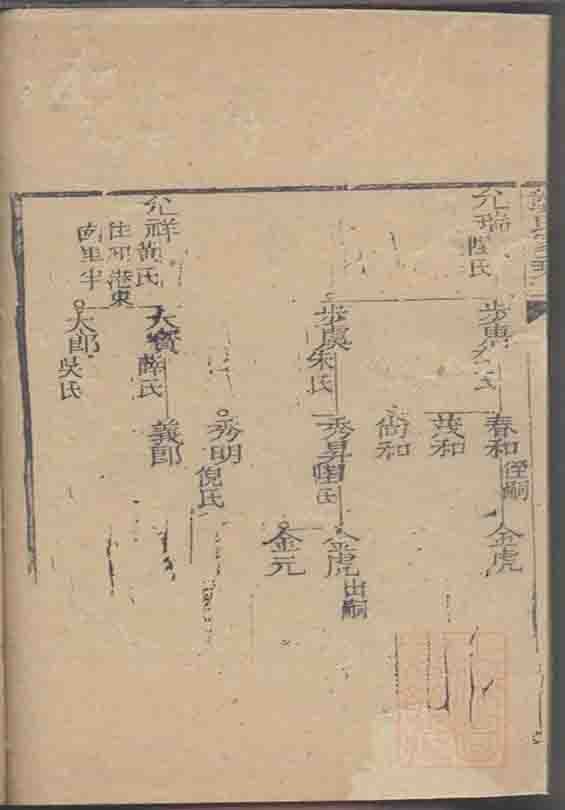 允瑞
陸氏
步
春和
侄嗣
金虎
茂和
尚和
步虞
朱氏
秀昇
氏
金虎
出嗣
金元
秀明
倪氏
允祥
黃氏
住
港東
南里半
大寳
薛氏
義郎
大郎
吳氏